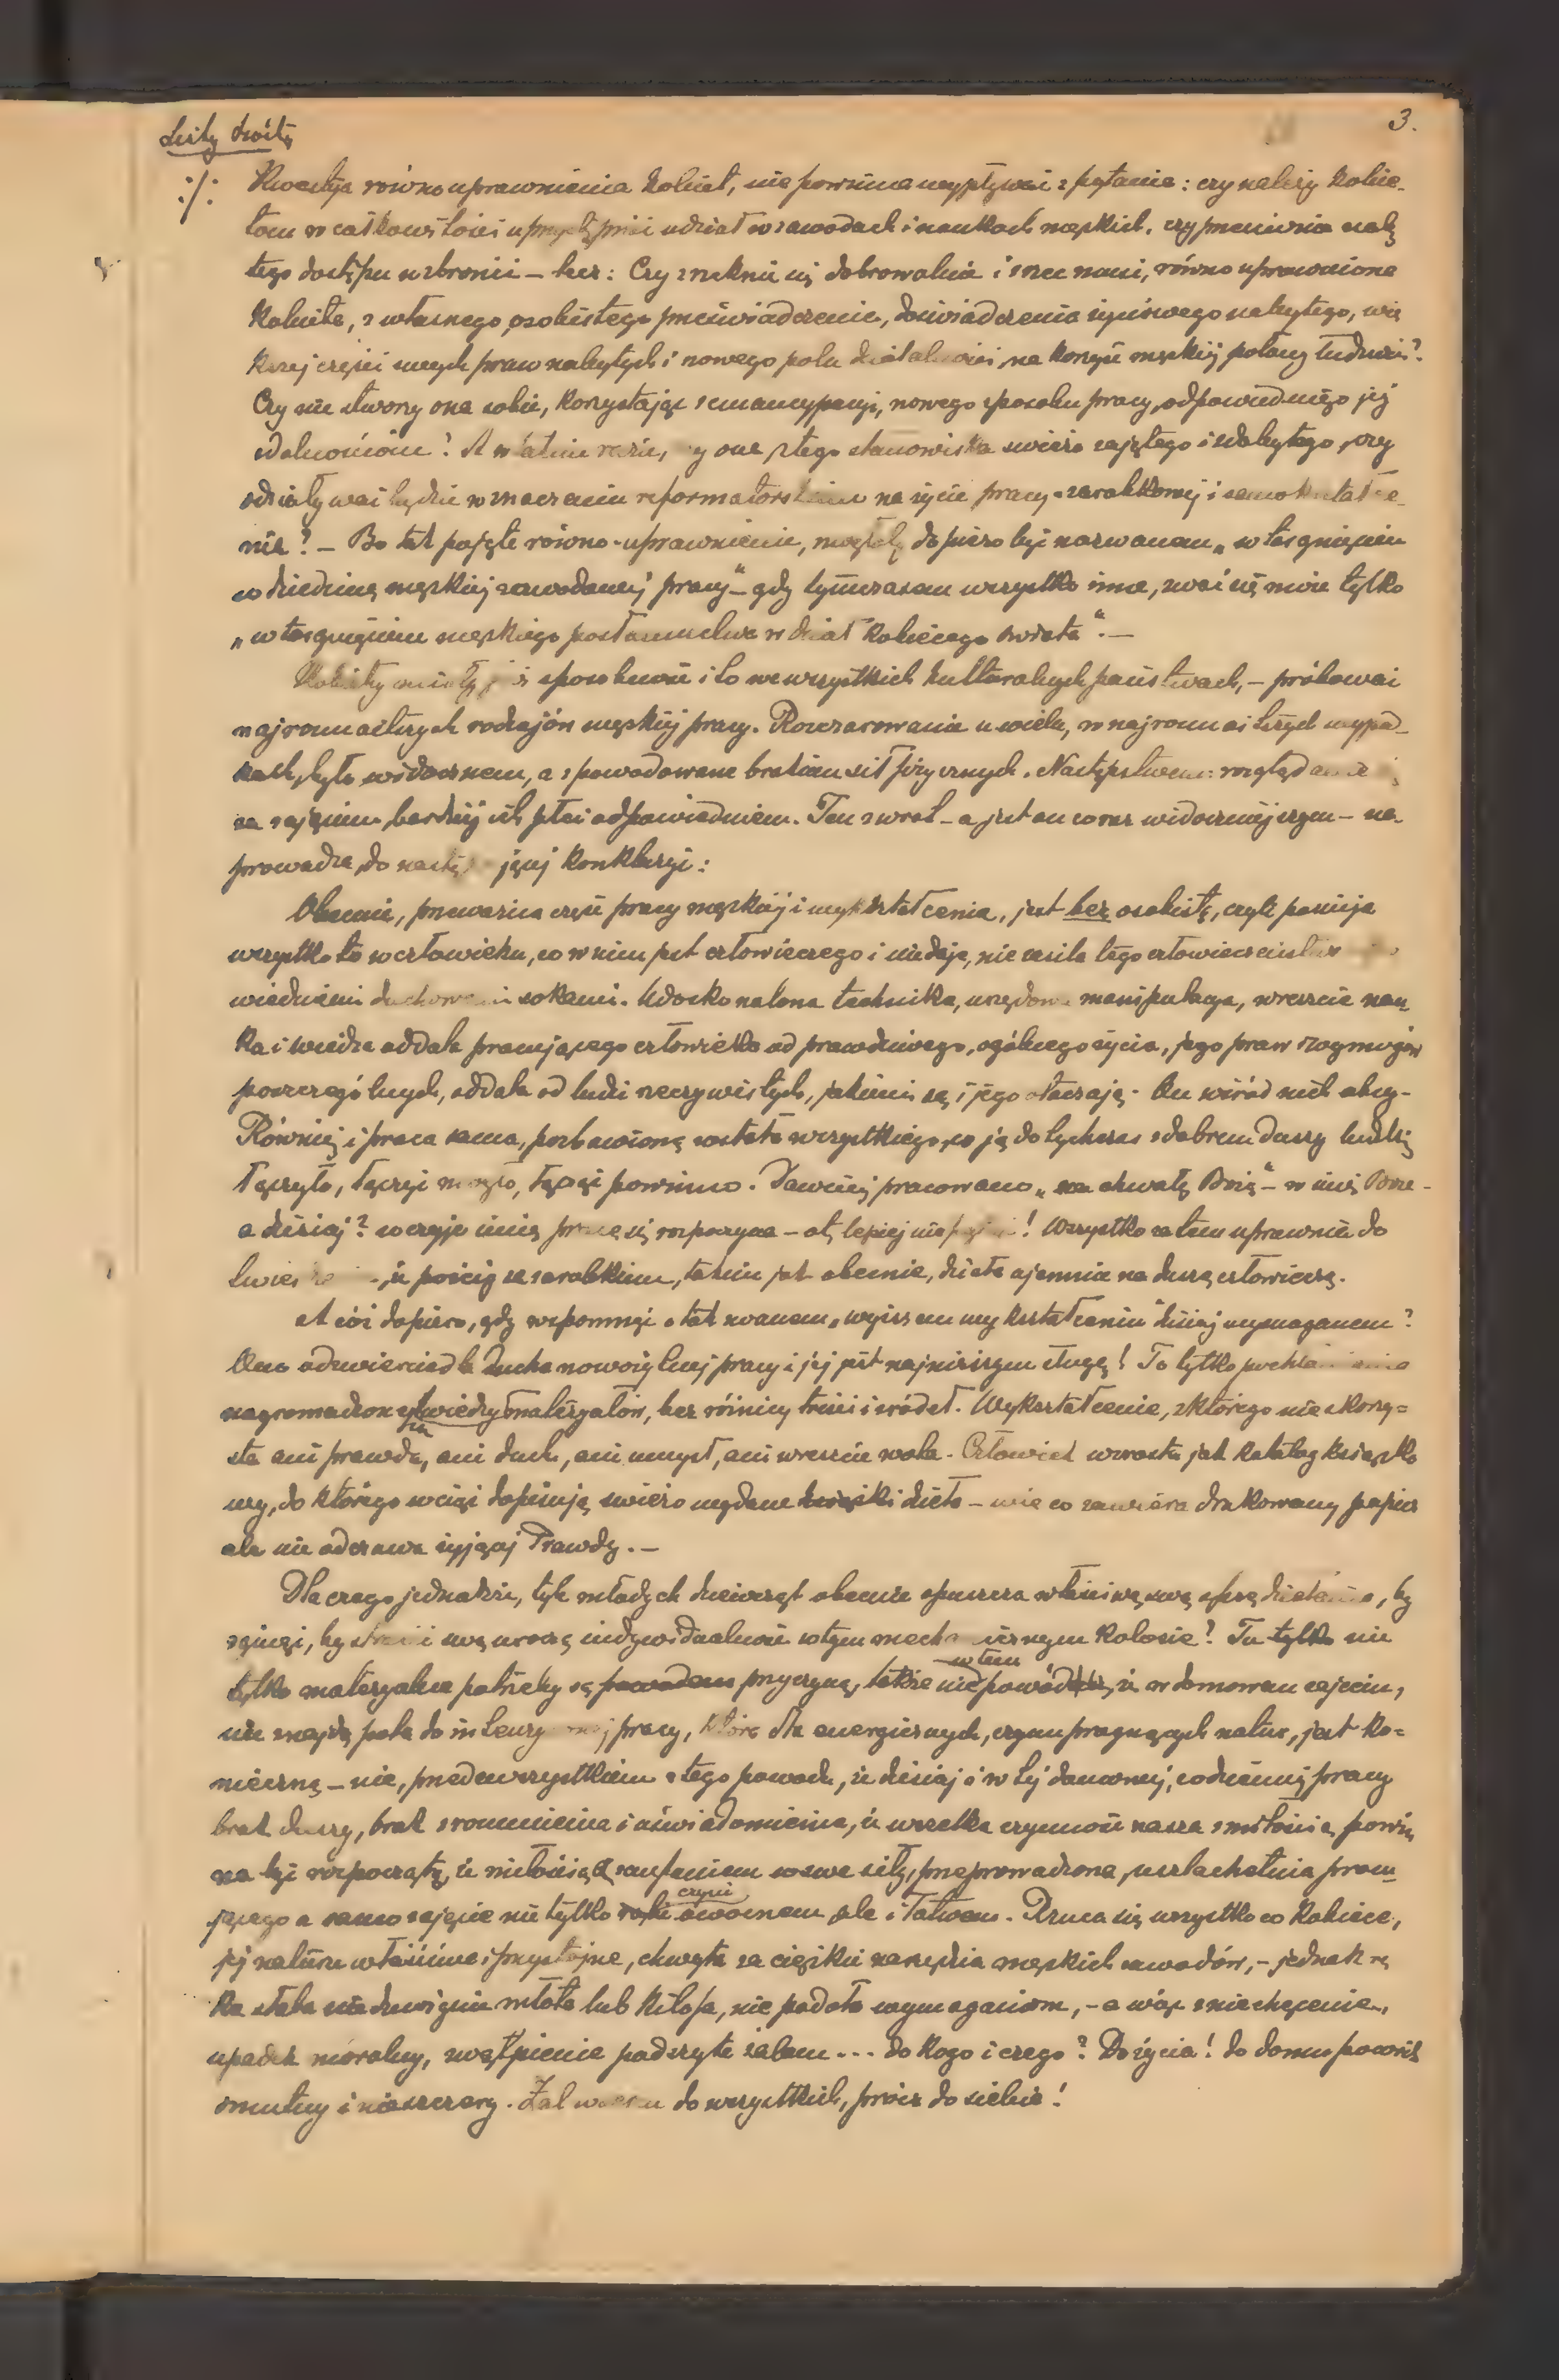 3.
Listy
./. Kwestya równouprawnienia kobiet, nie powinna wypływać z pytania: czy należy kobie-
tom w całkowitości udział w zawodach i naukach męskich, czy przeciwnie
tego dostępu wzbronić – lecz: Czy zreknie się dobrowolnie i równouprawniona
kobieta, z własnego, osobistego przeświadczenia, doświadczenia życiowego nabytego, wię
kszej części swych praw nabytych i nowego pola na korzyść męskiej połowy ludzkości?
Czy nie stworzy ona sobie, korzystając z emancypacyi, nowego sposobu pracy, odpowiedniego jej
zdolnościom? A w razie, ona z tego stanowiska świeżo zajętego i zdobytego, czy
oddziaływać będzie w znaczeniu na życie pracy zarobkowej i
nie? – Bo tak pojęte równo-uprawnienie, dopiero być nazwanem „wtargnięciem
w dziedzinę męskiej zawodowej pracy" – gdy tymczasem wszystko inne, zwać się może tylko
„wtargnięciem męskiego w dział kobiecego świata". –
Kobiety miały sposobność i to we wszystkich kulturalnych państwach, – próbować
najrozmaitszych rodzajów męskiej pracy. Rozczarowanie u wielu, w najrozmaitszych wypad-
kach, było widocznem, a spowodowane brakiem sił fizycznych. Następstwem:
za zajęciem, bardziej ich płci odpowiedniem. Ten zwrot – a jest on coraz widoczniejszym – na-
prowadza, do konkluzyi:
Obecnie, przeważna część pracy męskiej i wykształcenia, jest bez osobistą, czyli pomija
wszystko to w człowieku, co w nim jest człowieczego i nie daje, nie zasila tego
sokami. Udoskonalona technika, manipulacya, wreszcie nau-
ka i wiedza oddala pracującego człowieka od prawdziwego, ogólnego życia, jego praw i wymogów
poszczególnych, oddala od ludzi rzeczywistych, jakimi są i jego otaczają. On wśród nich obcy.
Również i praca sama, pozbawioną została wszystkiego, co ją dotychczas z dobrem duszy ludzkiej
łączyło, łączyć mogło, łączyć powinno. Dawniej pracowano „na chwałę Bożą" – w imię Boże –
a dzisiaj? w czyje imię pracę się rozpoczyna – ot, lepiej nie ! Wszystko zatem uprawnia do
że pościg za zarobkiem, takim jak obecnie, działa ujemnie na duszę człowieczą.
A cóż dopiero, gdy wspomnę o tak zwanem „wyższem wykształceniu" dzisiaj wymaganem?
Ono odzwierciadla ducha nowożytnej pracy i jej jest najniższym sługą! To tylko
nagromadzonych wiedzy materyałów, bez różnicy treści i źródeł. Wykształcenie, z którego nie skorzy=
sta ani prawda, ani duch, ani umysł, ani wreszcie wola. Człowiek wzrasta jak katalog książko
wy, do którego wciąż dopisują świeżo wydane dzieła – wie co zawiera drukowany papier
ale nie odczuwa żyjącej Prawdy. –
Dlaczego jednakże, tyle młodych dziewcząt obecnie opuszcza właściwą swą sferę działania, by
zginąć, by stracić swą indywidualność w tym kolosie? Tu tylko nie
tylko materyalne potrzeby są powodem przyczyną, także nie w tem powód, że w domowem zajęciu,
nie znajdą pola do pracy, która dla energicznych, czynu pragnących natur, jest ko=
nieczną – nie, przedewszystkiem z tego powodu, że dzisiaj i w tej dawnej, codziennej pracy
brak duszy, brak zrozumienia i uświadomienia, że wszelka czynność nasza z miłością powin
na być rozpoczętą, że miłością i zaufaniem w swe siły, przeprowadzona, uszlachetnia pracu-
jącego a samo zajęcie nie tylko czyni owocnem ale i łatwem. Rzuca się wszystko co kobiece,
jej naturze właściwe i przystojne, chwyta za ciężkie narzędzia męskich zawodów, – jednak rę
ka słaba nie dźwignie młota lub kilofa, nie podoła wymaganiom, – a więc zniechęcenie,
upadek moralny, zwątpienie podszyte żalem ... do kogo i czego? Do życia! do domu powrót
smutny i nieszczery. Żal do wszystkich, prócz do siebie!